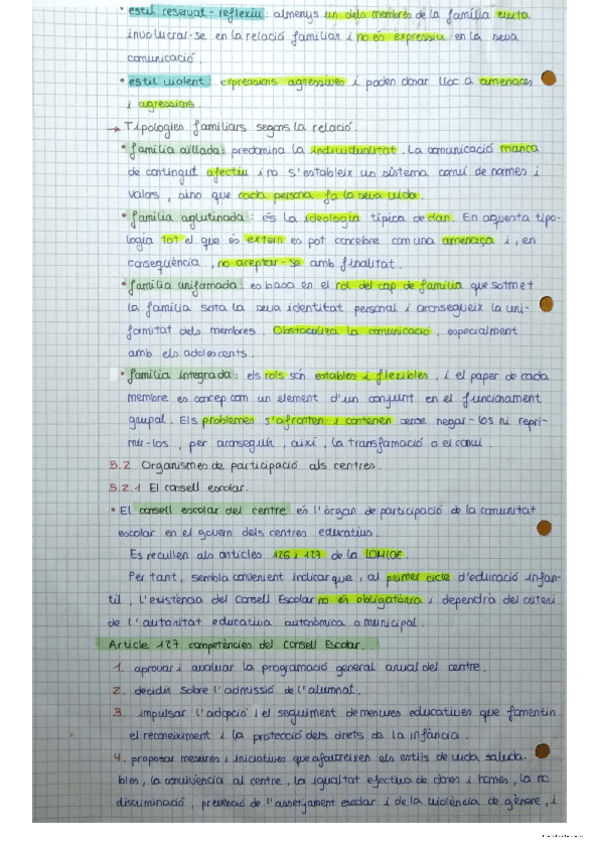 • estil reservat - reflexiu: almenys un dels membres de la família evita
involucrar-se en la relació familiar i no és expressiu en la seva
comunicació.
• estil violent: expressions agressives i poden donar lloc a amenaces
i agressions.
→ Tipologies familiars segons la relació.
• família aïllada: predomina la individualitat. La comunicació manca
de contingut afectiu i no s'estableix un sistema comú de normes i
valors, sino que cada persona fa la seva vida.
• família aglutinada: és la ideologia típica de clan. En aquesta tipo-
logia tot el que és extern es pot concebre com una amenaça i, en
conseqüència, no aceptar-se amb finalitat.
• família uniformada: es basa en el rol del cap de família que sotmet
la família sota la seva identitat personal i aconsegueix la uni-
formitat dels membres. Obstaculitza la comunicació, especialment
amb els adolescents.
• família integrada: els rols són estables i flexibles, i el paper de cada
membre es concep com un element d'un conjunt en el funcionament
grupal. Els problemes s'afronten i contenen sense negar-los ni repri-
mir-los, per aconseguir, així, la transformació o el canvi.
5.2 Organismes de participació als centres.
5.2.1 El consell escolar.
• El consell escolar del centre és l'òrgan de participació de la comunitat
escolar en el govern dels centres educatius.
Es recullen als articles 126 i 127 de la LOMLOE.
Per tant, sembla convenient indicar que, al primer cicle d'educació infan-
til, l'existència del Consell Escolar no és obligatòria i dependrà del criteri
de l'autoritat educativa autonòmica o municipal.
Article 127 competències del Consell Escolar.
1. aprovar i avaluar la programació general anual del centre.
2. decidir sobre l'admissió de l'alumnat.
3. impulsar l'adopció i el seguiment de mesures educatives que fomentin
el reconeixement i la protecció dels drets de la infància.
4. proposar mesures i iniciatives que afavoreixen els estils de vida saluda-
bles, la convivència al centre, la igualtat efectiva de dones i homes, la no
discriminació, prevenció de l'assetjament escolar i de la violència de gènere, i